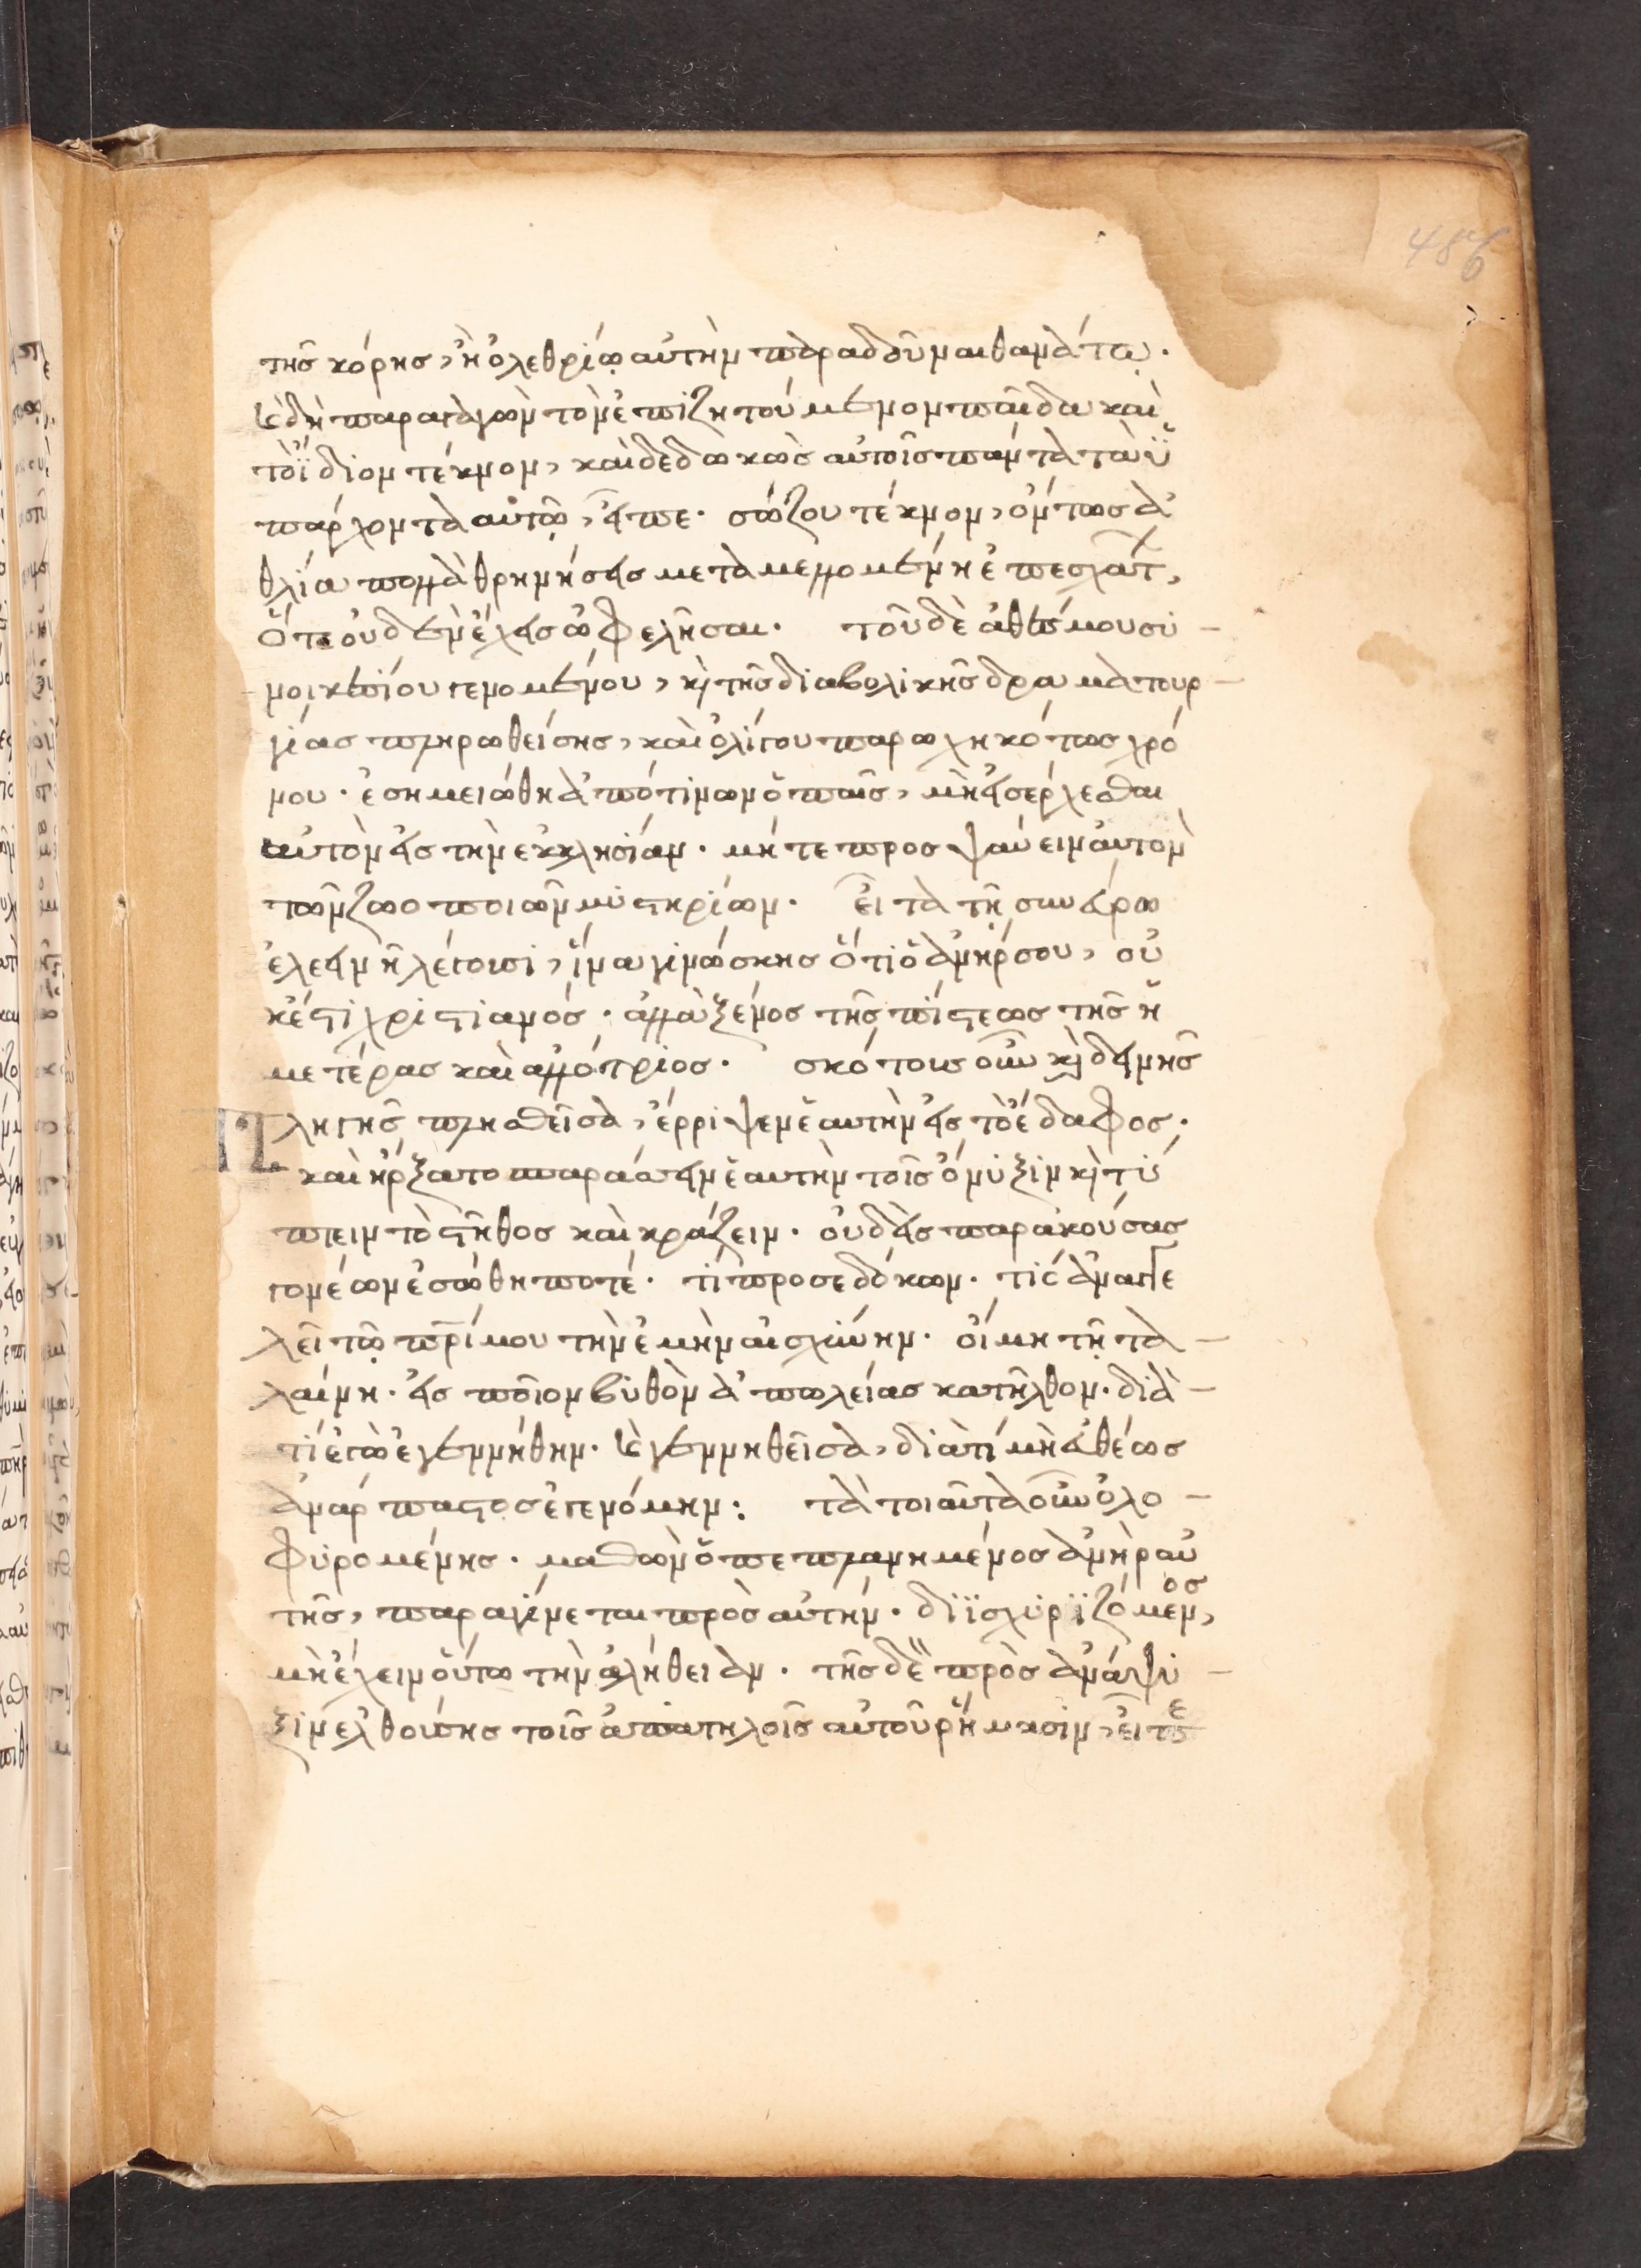 486
τῆς κόρης, ἢ ὀλεθρίῳ αὐτὴν παραδοῦναι θανάτῳ.
εἰ δὴ παραγαγὼν τὸν ἐπιζητούμενον παῖδα καὶ
τὸ ἴδιον τέκνον, καὶ δεδωκὼς αὐτοῖς πάντα τὰ ὑ
πάρχοντα αὐτῷ, εἶπε. σώζου τέκνον, ὄντως ἀ
θλία πολλὰ θρηνήσεις μεταμελλομένη ἐπεσχάτ,
ὅτε οὐδὲν ἔχεις ὠφελῆσαι. τοῦ δὲ ἀθέσμου συ
νοικεσίου γενομένου, κὴ τῆς διαβολικῆς δραματουρ
γίας πληρωθείσης, καὶ ὀλίγου παρωχηκότως χρό
νου. ἐσημειώθη ἀπό τινων ὁ παῖς, μὴ εἰσέρχεσθαι
αὐτὸν εἰς τὴν ἐκκλησίαν. μήτε προσψαύειν αὐτὸν
τῶν ζωοποιῶν μυστηρίων. εἶτα τῇ συνεύνω
ἐλεεινῆ λέγουσι, ἵνα γινώσκης ὅτι ὁ ἀνήρ σου, οὐ
κέστι χριστιανός. ἀλλὰ ξένος τῆς πίστεως τῆς ἡ
μετέρας καὶ ἀλλότριος. σκότους οὖν κὴ δεινῆς
πληγῆς πλησθεῖσα, ἔρριψεν ἑαυτὴν εἰς τὸ ἔδαφος.
καὶ ἤρξατο σπαράσσειν ἑαυτὴν τοῖς ὄνυξιν κὴ τύ
πτειν τὸ στῆθος καὶ κράζειν. οὐδεὶς παρακούσας
γονέων ἐσώθη ποτέ. τί προσεδόκων. τίς ἀναγγε
λεῖ τῷ πρί μου τὴν ἐμὴν αἰσχύνην. οἴμη τῇ τα
λαίνη. εἰς ποῖον βυθὸν ἀπωλείας κατῆλθον. διὰ
τί ἐγὼ ἐγεννήθην. εἰ γεννηθεῖσα, διὰ τί μὴ εὐθέως
ἀνάρπαστος ἐγενόμην: τὰ τοιαῦτα οὖν ὀλο
φυρομένης. μαθὼν ὅπε πλανημένος ἀνὴρ αὐ
τῆς, παραγίνεται πρὸς αὐτήν. διϊσχυρϊζόμενος,
μὴ ἔχειν οὕτω τὴν ἀλήθειαν. τῆς δὲ πρὸς ἀνάψυ
ξιν ἐλθούσης τοῖς ἀπατηλοῖς αὐτοῦ ῥήμασιν, εἴ τε